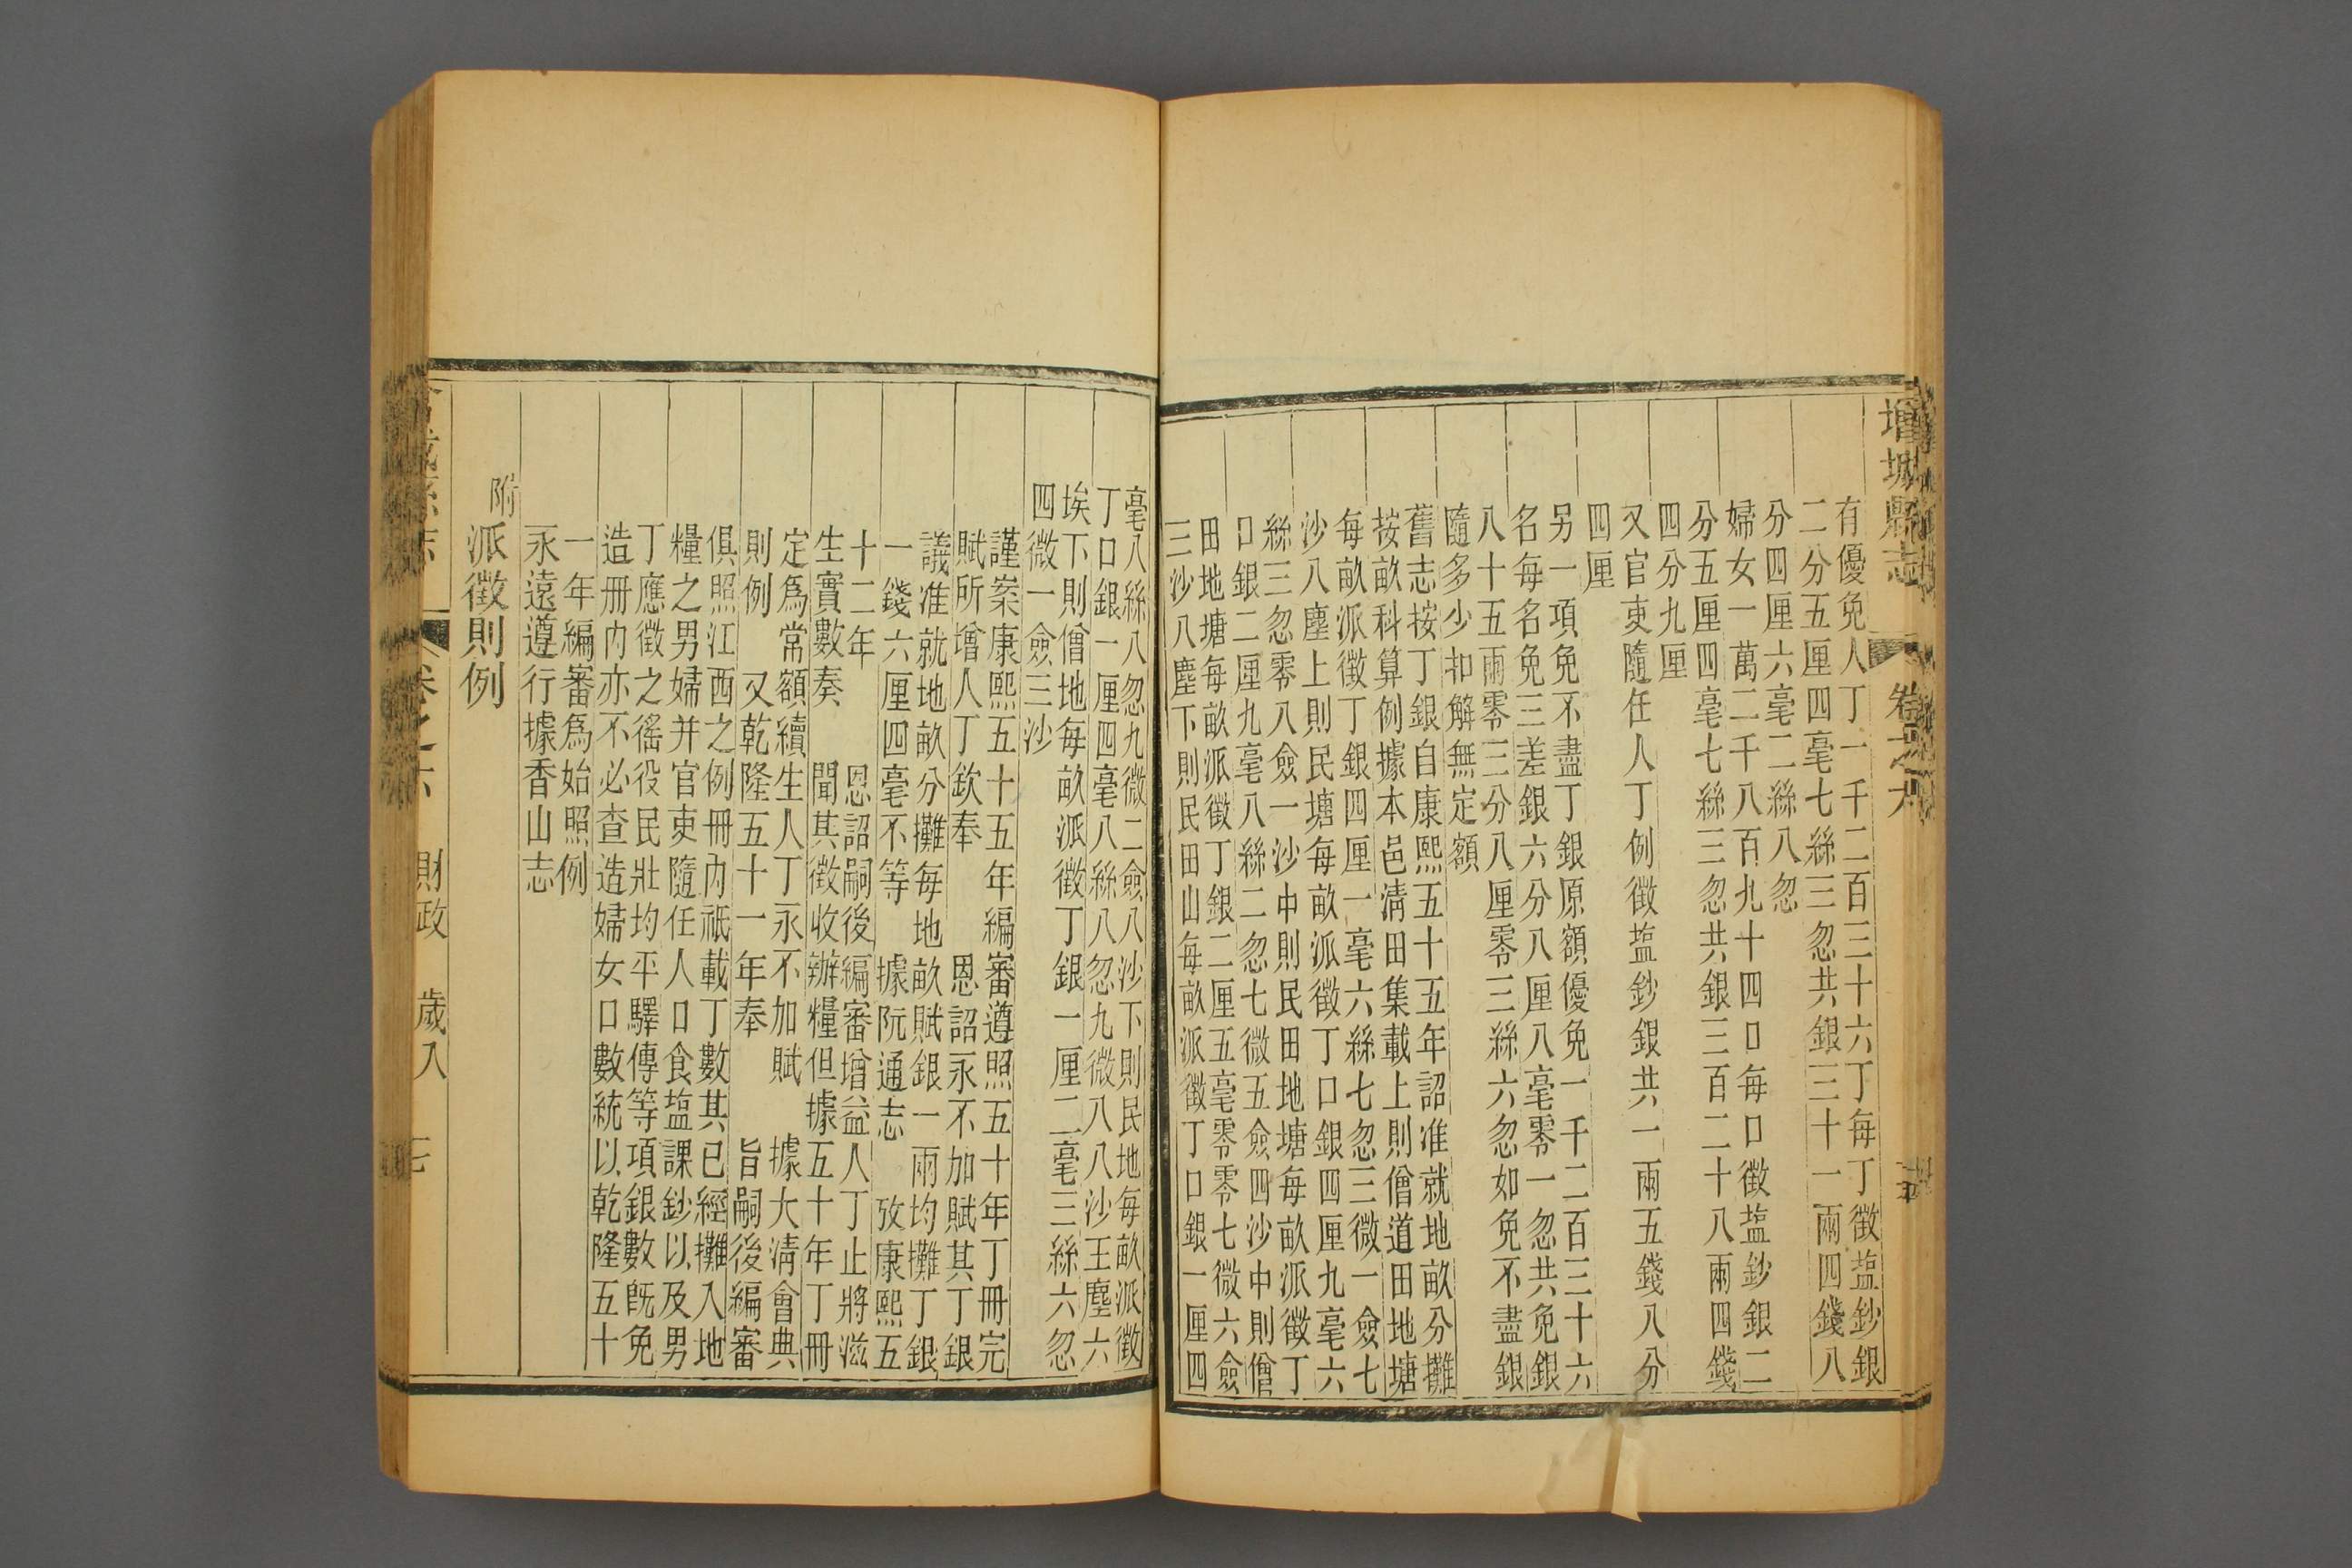 增城縣志
卷之
有優免人丁一千二百三十六丁每丁徵塩鈔銀
二分五厘四毫七絲三忽共銀三十一兩四錢八
分四厘六毫二絲八忽
婦女一萬二千八百九十四口每口徵塩鈔銀二
分五厘四毫七絲三忽共銀三百二十八兩四錢
四分九厘
又官吏隨任人丁例徵塩鈔銀共一兩五錢八分
四厘
另一項免不盡丁銀原額優免一千二百三十六
名每名免三差銀六分八厘八毫零一忽共免銀
八十五兩零三分八厘零三絲六忽如免不盡銀
隨多少扣解無定額
舊志按丁銀自康熙五十五年詔准就地畝分攤
按畝科算例據本邑清田集載上則僧道田地塘
每畝派徵丁銀四厘一毫六絲七忽三微一僉七
沙八塵上則民塘每畝派徵丁口銀四厘九毫六
絲三忽零八僉一沙中則民田地塘每畝派徵丁
口銀二厘九毫八絲二忽七微五僉四沙中則僧
田地塘每畝派徵丁銀二厘五毫零零七微六僉
三沙八塵下則民田山每畝派徵丁口銀一厘四
毫八絲八忽九微二僉八沙下則民地每畝派徵
丁口銀一厘四毫八絲八忽九微八八沙王塵六
埃下則僧地每畝派徵丁銀一厘二毫三絲六忽
四微一僉三沙
謹案康熙五十五年編審遵照五十年丁冊完
賦所增人丁欽奉　恩詔永不加賦其丁銀
議准就地畝分攤每地畝賦銀一兩均攤丁銀
一錢六厘四毫不等　據阮通志　攷康熙五
十二年　恩詔嗣後編審增益人丁止將滋
生實數奏　聞其徵收辦糧但據五十年丁冊
定爲常額續生人丁永不加賦　據大清會典
則例　又乾隆五十一年奉　旨嗣後編審
俱照江西之例冊內祇載丁數其已經攤入地
糧之男婦并官吏隨任人口食塩課鈔以及男
丁應徵之徭役民壯均平驛傳等項銀數既免
造冊內亦不必查造婦女口數統以乾隆五十
一年編審爲始照例
永遠遵行據香山志
附派徵則例
財政　歲入